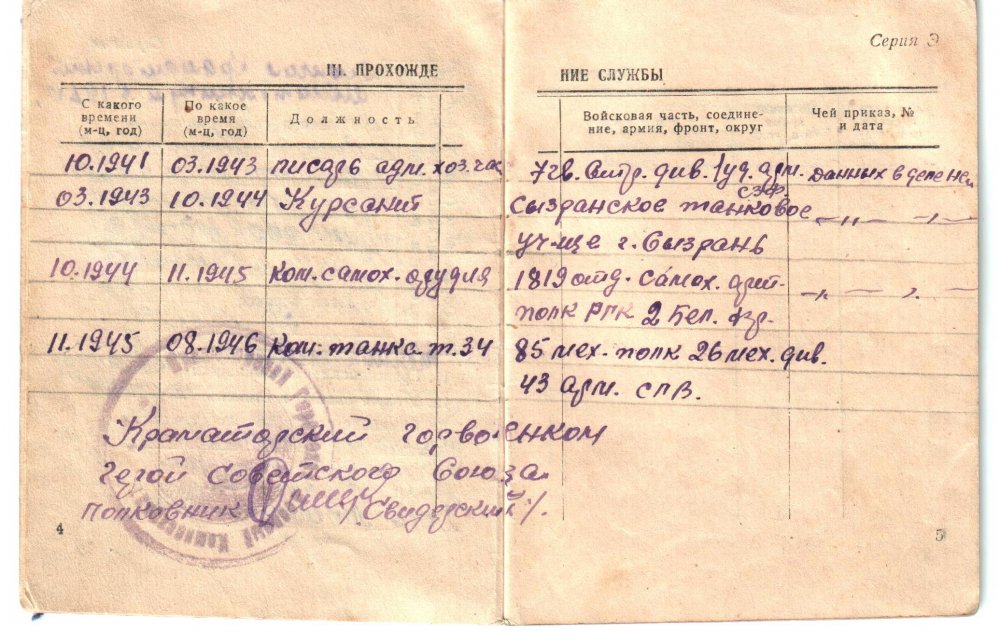 Серия Э
III. ПРОХОЖДЕНИЕ СЛУЖБЫ
С какого времени (м-ц, год)
По какое время (м-ц, год)
Должность
Войсковая часть, соединение, армия, фронт, округ
Чей приказ, № и дата
10.1941 03.1943 писарь адм. хоз. час 7 гв. стр. див. 1 уд. арм. данных в деле нет
СЗФ.
03.1943 10.1944 Курсант Сызранское танковое —„— —„—
уч-ще г. Сызрань
10.1944 11.1945 ком. самох. орудия 1819 отд. самох. арт. —„— —„—
полк РГК 2 Бел. фр.
11.1945 08.1946 Ком. танка т. 34 85 мех. полк 26 мех. див.
43 арм. СГВ.
Краматорский горвоенком
герой Советского Союза
полковник /Свидерский/.
4
5